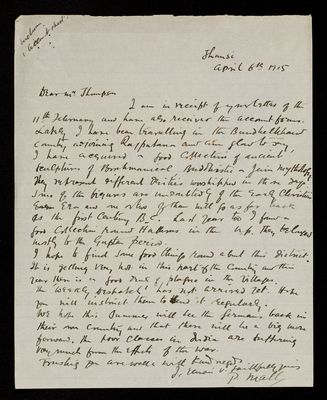 Jhansi
April 6th 1915
Dear Mr Thompson
I am in receipt of your letter of the
11th February and have also received the account forms.
Lately I have been travelling in the Bundhelkhand
country, adjoining Rajputana and am glad to say,
I have acquired a good collection of ancient
sculptures of Brahmanical Buddhistic & Jain Mythology,
They represent different Deities worshipped in those days
Some of the figures are undoubtedly of the Early Christian
Era and one or two of them will go as far back
as the first Century B.C. Last year too I found a
good collection round Hathras in the U.P. they belonged
mostly to the Gupta period.
I hope to find some good things round about this district.
It is getting very hot in this part of the Country and this
year there is a good deal of plague in the villages.
The Weekly Despatch has not arrived yet. Hope
you will instruct them to send it regularly.
We hope this Summer will see the Germans, back in
their own Country and that there will be a big move
forward, the poor Classes in India are suffering
very much from the effects of the war.
Trusting you are well & with kind regards
I remain yrs faithfully
P. Mall